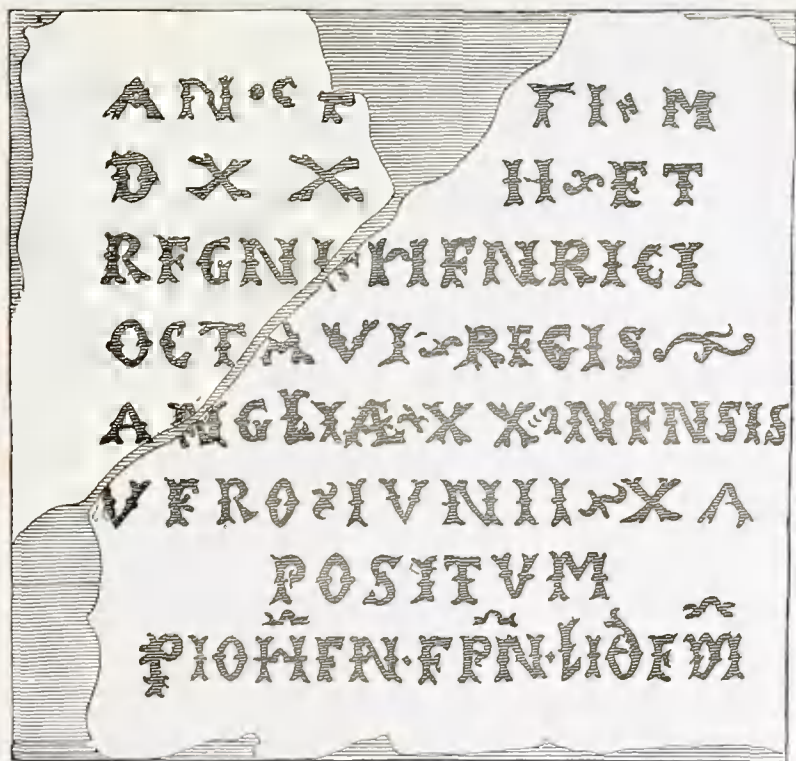 AN·CT TI·M
DXX II ET
REGNI HENRICI
OCTAVI REGIS
ANGLIÆ XX NENSIS
VERO IVNII XA
POSITVM
P IOHEN·EPN·LIDEM